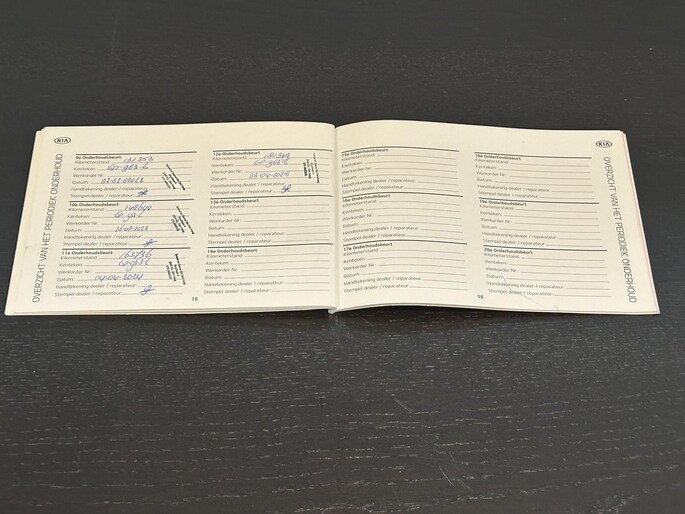 KIA
OVERZICHT VAN HET PERIODIEK ONDERHOUD
9e Onderhoudsbeurt
Kilometerstand 131353
Kenteken
Werkorder Nr
Datum 02-02-2023
Handtekening dealer / reparateur
Stempel dealer / reparateur
10e Onderhoudsbeurt
Kilometerstand
Kenteken
Werkorder Nr
Datum
Handtekening dealer / reparateur
Stempel dealer / reparateur
11e Onderhoudsbeurt
Kilometerstand 165736
Kenteken
Werkorder Nr
Datum 04-04-2024
Handtekening dealer / reparateur
Stempel dealer / reparateur
12e Onderhoudsbeurt
Kilometerstand
Kenteken
Werkorder Nr
Datum 23-04-2025
Handtekening dealer / reparateur
Stempel dealer / reparateur
13e Onderhoudsbeurt
Kilometerstand
Kenteken
Werkorder Nr
Datum
Handtekening dealer / reparateur
Stempel dealer / reparateur
14e Onderhoudsbeurt
Kilometerstand
Kenteken
Werkorder Nr
Datum
Handtekening dealer / reparateur
Stempel dealer / reparateur
15
15e Onderhoudsbeurt
Kilometerstand
Kenteken
Werkorder Nr
Datum
Handtekening dealer / reparateur
Stempel dealer / reparateur
16e Onderhoudsbeurt
Kilometerstand
Kenteken
Werkorder Nr
Datum
Handtekening dealer / reparateur
Stempel dealer / reparateur
17e Onderhoudsbeurt
Kilometerstand
Kenteken
Werkorder Nr
Datum
Handtekening dealer / reparateur
Stempel dealer / reparateur
18e Onderhoudsbeurt
Kilometerstand
Kenteken
Werkorder Nr
Datum
Handtekening dealer / reparateur
Stempel dealer / reparateur
19e Onderhoudsbeurt
Kilometerstand
Kenteken
Werkorder Nr
Datum
Handtekening dealer / reparateur
Stempel dealer / reparateur
20e Onderhoudsbeurt
Kilometerstand
Kenteken
Werkorder Nr
Datum
Handtekening dealer / reparateur
Stempel dealer / reparateur
16
KIA
OVERZICHT VAN HET PERIODIEK ONDERHOUD